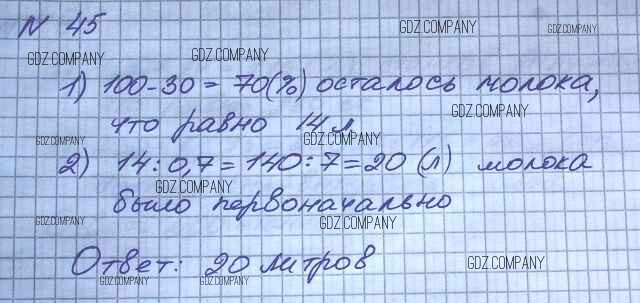 N 45
GDZ.COMPANY GDZ.COMPANY
GDZ.COMPANY GDZ.COMPANY
1) 100-30 = 70(%) осталось молока,
GDZ.COMPANY
что равно 14 л
GDZ.COMPANY GDZ.COMPANY
2) 14 : 0,7 = 140 : 7 = 20 (л) молока
GDZ.COMPANY
было первоначально
GDZ.COMPANY GDZ.COMPANY
Ответ: 20 литров
GDZ.COMPANY
GDZ.COMPANY GDZ.COMPANY